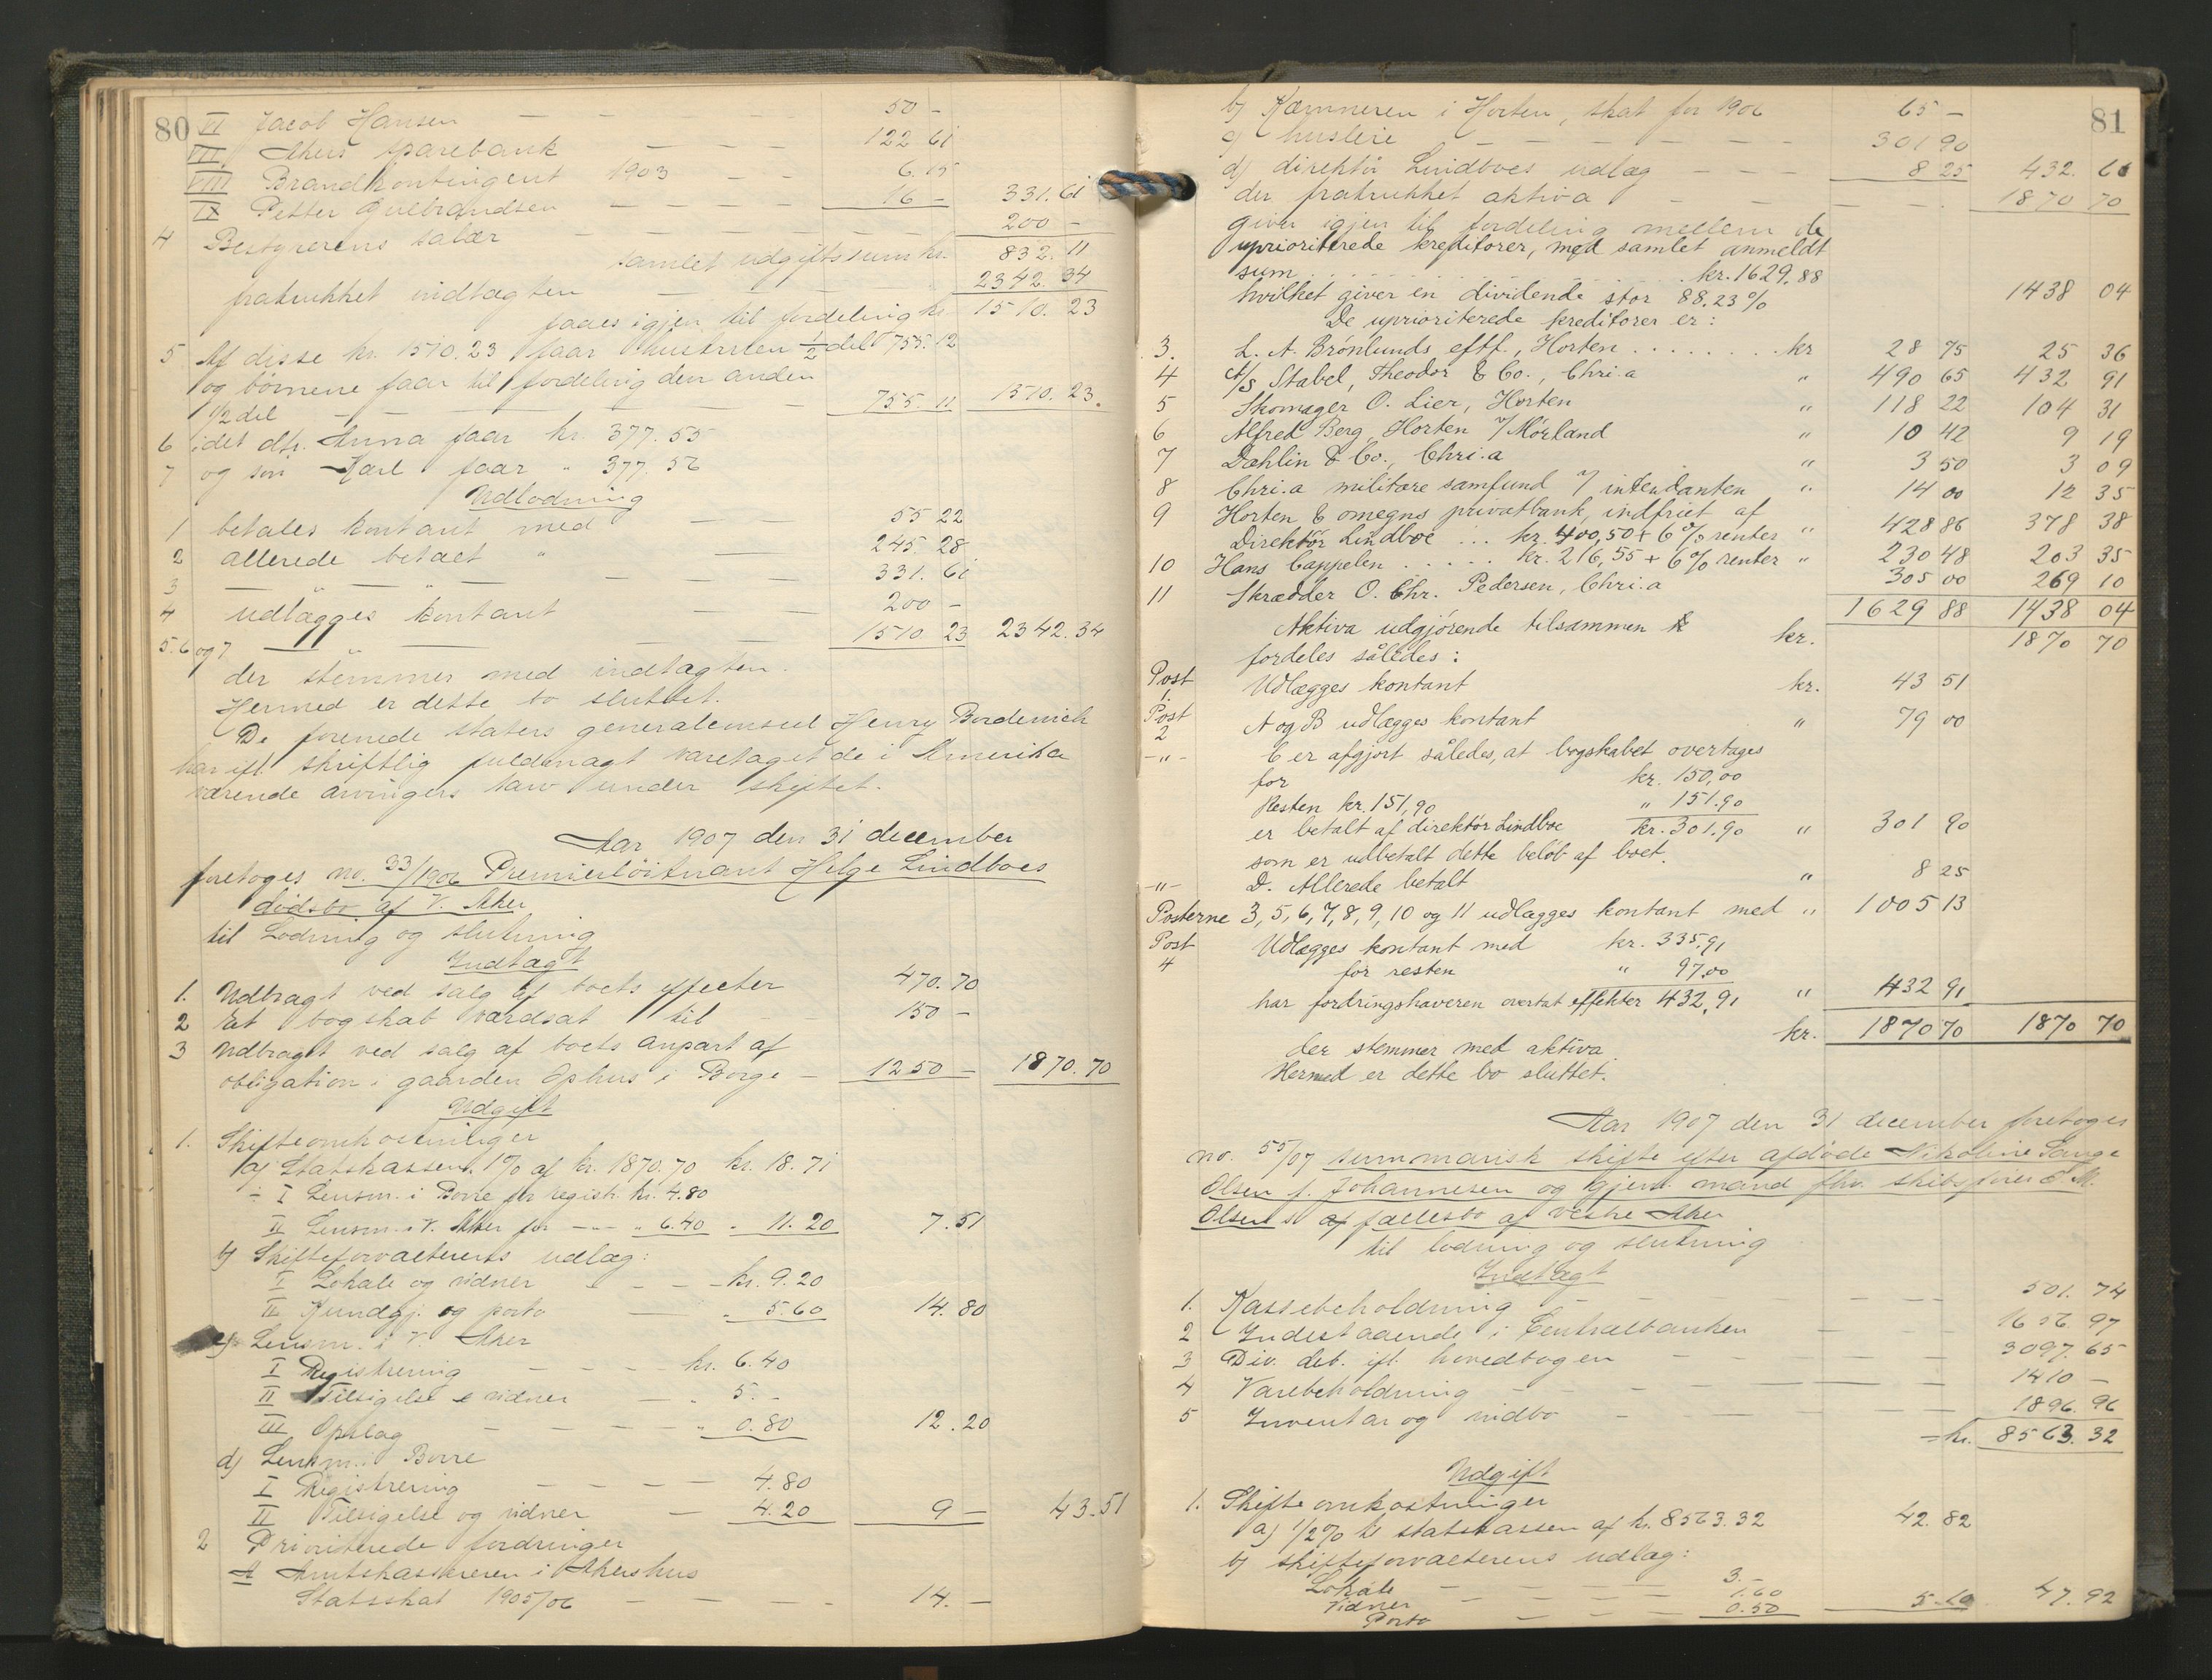 80
VI Jacob Hansen — — — 50 -
VII Akers sparebank — — — 122 61
VIII Brandkontingent 1903 — — 6.15
IX Petter Gulbrandsen — — — — 16 - 331.61
4 Bestyrerens salær — — — — 200 -
samlet udgiftssum kr. 832.11
fratrukket indtægten — — — 2342.34
faaes igjen til fordeling kr. 1510.23
5 Af disse kr. 1510.23 faar hustruen 1/2 del 755.12
og börnene faar til fordeling den anden
1/2 del — — — 755.11 1510.23.
6 idet dtr. Anna faar kr. 377.55
7 og sön Karl faar " 377.56
Udlodning
1 betales kontant med — — 55 22
2 allerede betalt " — 245.28
3 — " — " — — 331.61
4 udlægges kontant — — 200 -
5.6 og 7 — " — — 1510 23 2342.34
der stemmer med indtægten.
Hermed er dette bo sluttet.
De forenede staters generalconsul Henry Bordewich
har ifl. skriftlig fuldmagt varetaget de i Amerika
værende arvingers tarv under skiftet.
Aar 1907 den 31 december
foretoges no. 33/1906 Premierlöitnant Helge Lindboes
dödsbo af V. Aker
til Lodning og slutning
Indtægt
1. Udbragt ved salg af boets effecter 470.70
2 Et bogskab værdsat til — 150 -
3 Udbragt ved salg af boets anpart af
obligation i gaarden Ophus i Borge — 1250 - 1870.70
Udgift
1. Skifteomkostninger
a) Statskassen 1% af kr. 1870.70 kr. 18.71
÷ I Lensm. i Borre for registr. kr. 4.80
II Lensm. i V. Aker for —"— " 6.40 " 11.20 7.51
b) Skifteforvalterens udlæg:
I Lokale og vidner — — — kr. 9.20
II Kundgj. og porto — " 5.60 14.80
c) Lensm. i V. Aker
I Registrering — — — kr. 6.40
II Tilsigelse & vidner — " 5.-
III Opslag — — — — " 0.80 12.20
d) Lensm. i Borre
I Registrering — — — 4.80
II Tilsigelse og vidner — 4.20 9 — 43.51
2 Prioriterede fordringer
A Amtskassereren i Akershus
Statsskat 1905/06 — — — — 14.—
81
b) Kæmneren i Horten, skat for 1906 65 -
c) husleie — — — — — — 301 90
d) direktör Lindboes udlæg — — — 8 25 432.66
der fratrukket aktiva — — — 1870 70
giver igjen til fordeling mellem de
uprioriterede kreditorer, med samlet anmeldt
sum . . . . . . . . . . kr. 1629,88
hvilket giver en dividende stor 88.23% 1438 04
De uprioriterede kreditorer er:
3. L. A. Brönlunds eftf., Horten . . . . . . . kr 28 75 25 36
4 A/S Stabel, Theodor & Co., Chri.a " 490 65 432 91
5 Skomager O. Lier, Horten " 118 22 104 31
6 Alfred Berg, Horten v/Mörland " 10 42 9 19
7 Dahlin & Co., Chri.a " 3 50 3 09
8 Chri.a militære samfund v/ intendanten " 14 00 12 35
9 Horten & omegns privatbank, indfriet af
Direktör Lindboe ... kr. 400,50 + 6% renter " 428 86 378 38
10 Hans Cappelen . . . . . kr. 216,55 + 6% renter " 230 48 203 35
11 Skrædder O. Chr. Pedersen, Chri.a 305 00 269 10
1629 88 1438 04
Aktiva udgjörende tilsammen kr. 1870 70
fordeles således:
Post 1. Udlægges kontant kr. 43 51
Post 2 A og B udlægges kontant " 79 00
—"— C er afgjort således, at bogskabet overtages
for kr. 150,00
Resten kr. 151,90 " 151.90
er betalt af direktör Lindboe kr. 301.90 " 301 90
som er udbetalt dette belöb af boet.
—"— D. Allerede betalt " 8 25
Posterne 3, 5, 6, 7, 8, 9, 10 og 11 udlægges kontant med " 1005 13
Post 4 Udlægges kontant med kr. 335,91
for resten " 97,00
har fordringshaveren overtat effekter 432,91 " 432 91
kr. 1870 70 1870 70
der stemmer med aktiva.
Hermed er dette bo sluttet.
Aar 1907 den 31 december foretoges
no. 55/07 summarisk skifte efter afdöde Nikoline Lange
Olsen f. Johannesen og gjenl. mand fhv. skibsförer O. M.
Olsens fællesbo af Vestre Aker
til lodning og slutning
Indtægt
1. Kassebeholdning — — — — 501.74
2 Indestaaende i Centralbanken — — 1656.97
3 Div. deb. ifl. hovedbogen — — — 3097.65
4 Varebeholdning — — — — 1410 -
5 Inventar og indbo — — — — 1896.96
= kr. 8563.32
Udgift
1. Skifteomkostninger
a) 1/2% til statskassen af kr. 8563.32 42.82
b) skifteforvalterens udlæg:
Lokale — — — — 3.-
Vidner — — — — 1.60
Porto — — — 0.50 5.10 47.92